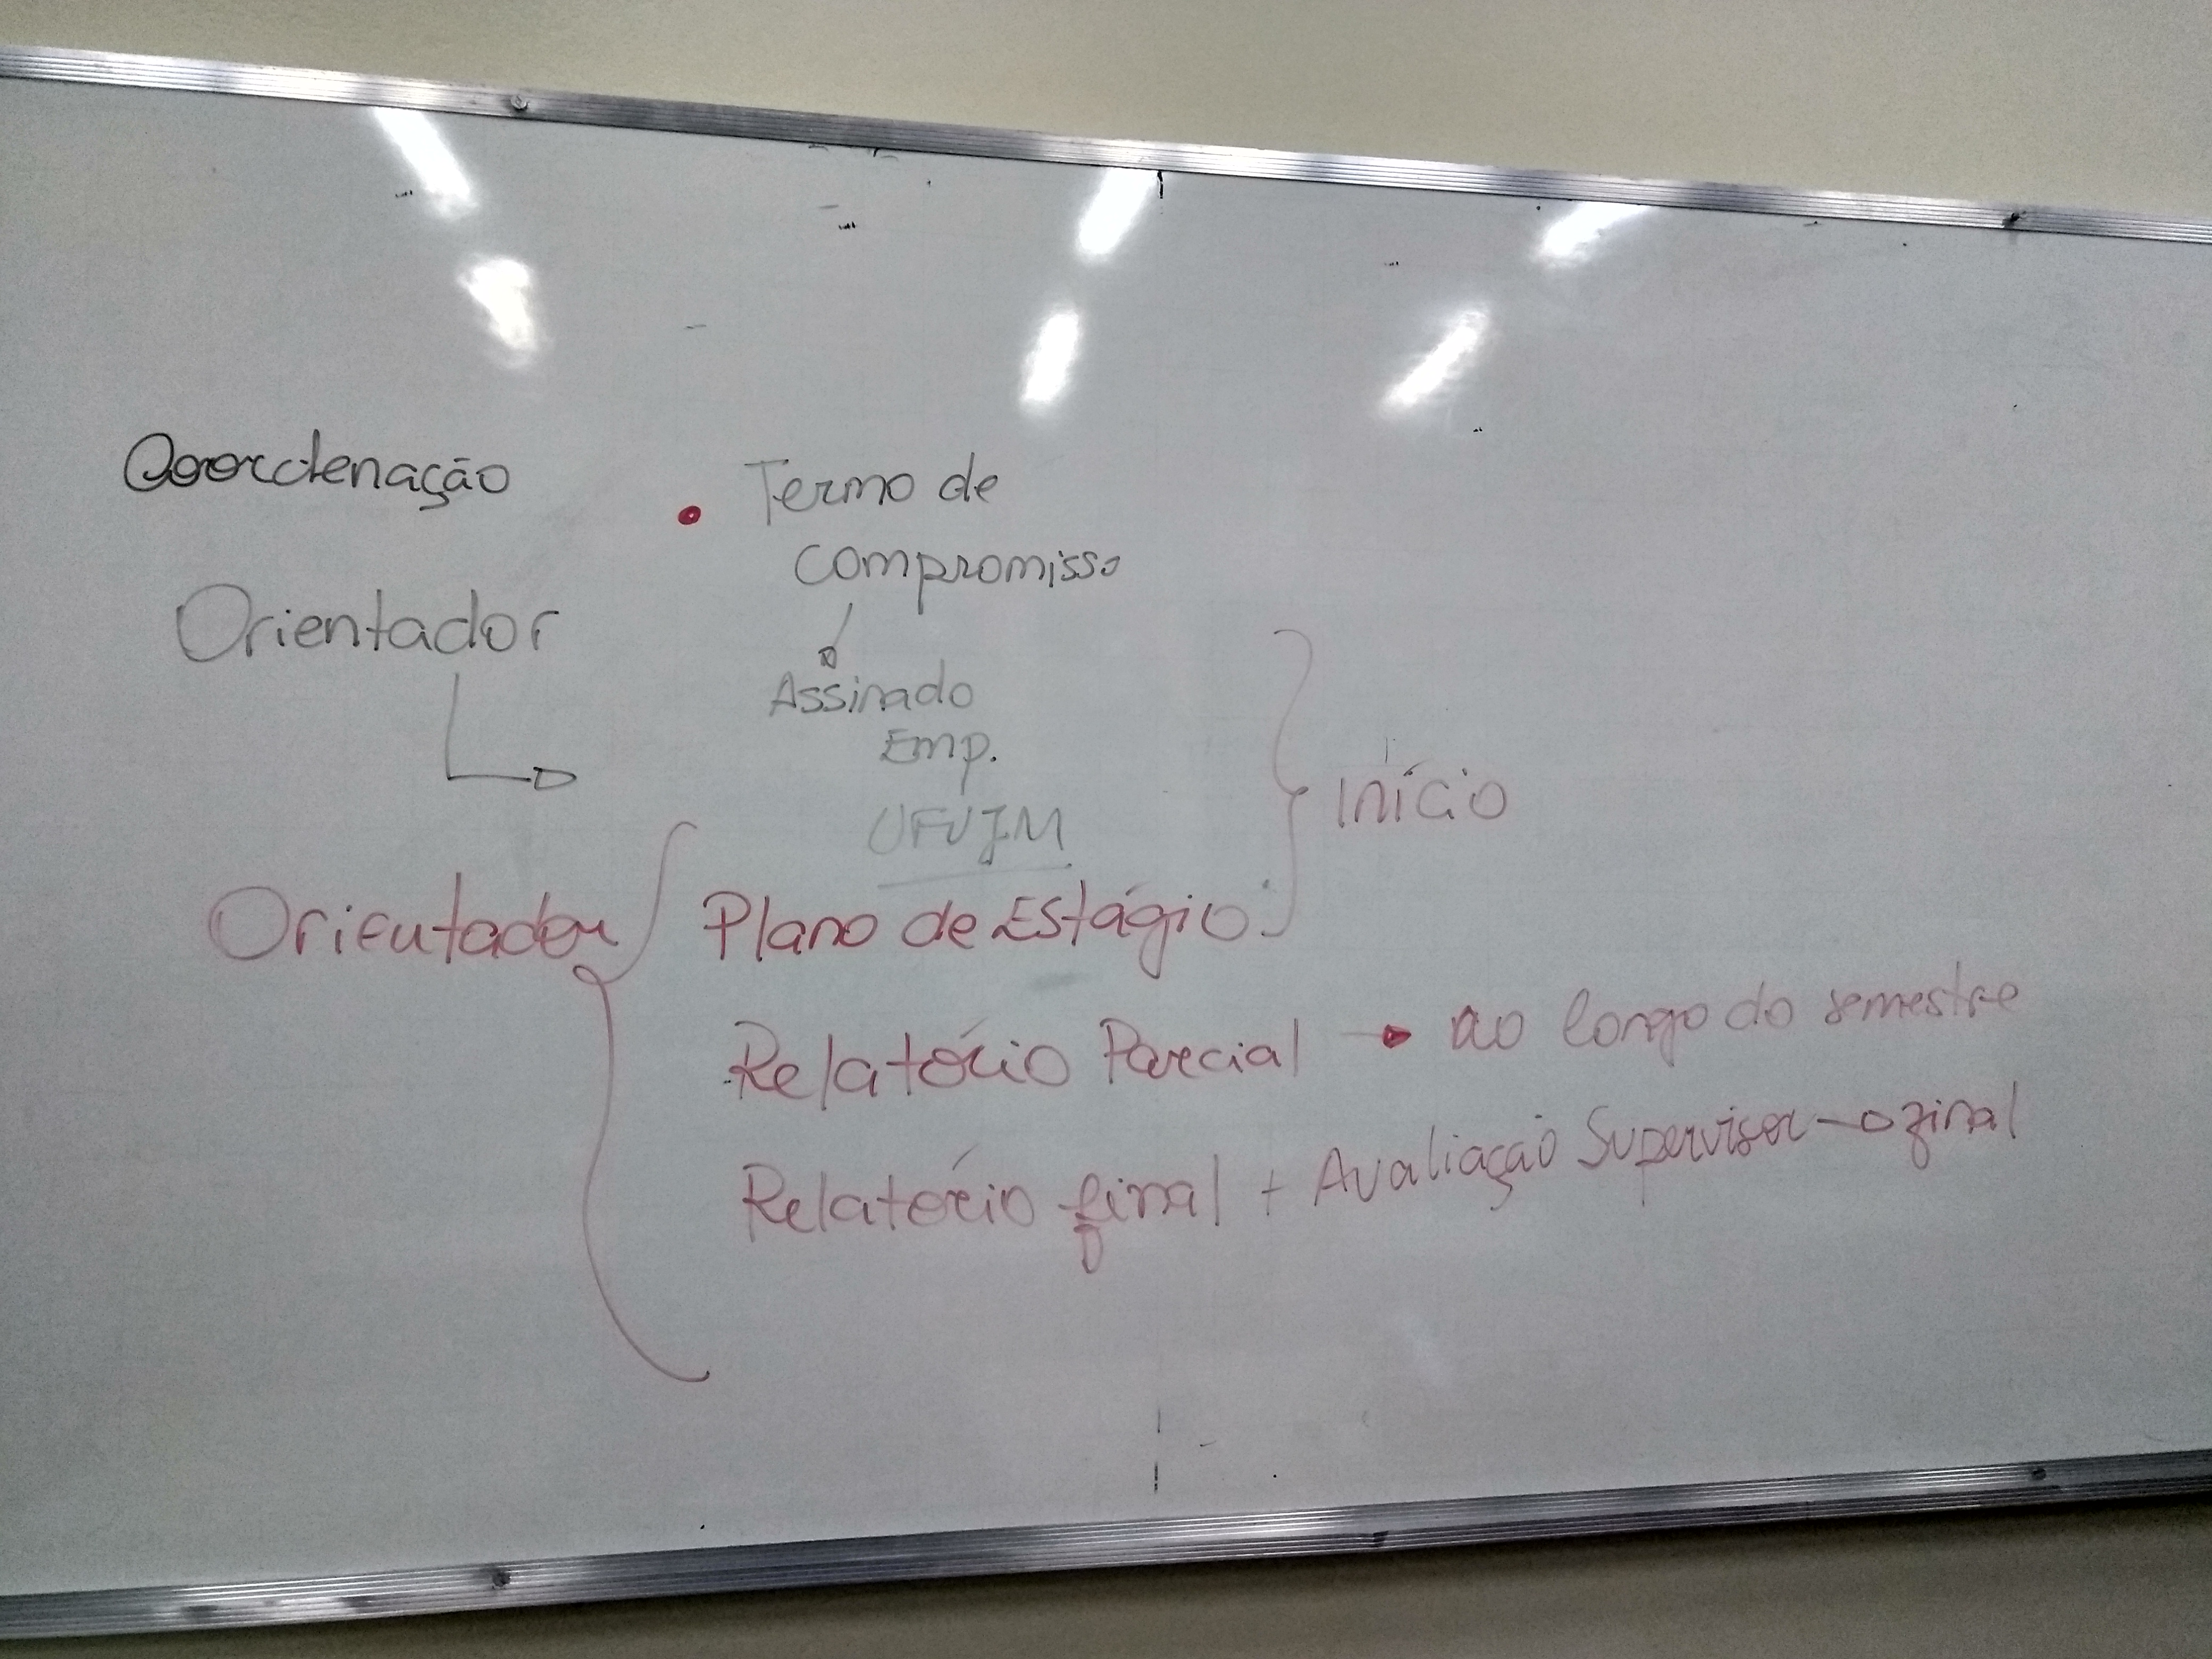 Coordenação
• Termo de
compromisso
Orientador
Assinado
Emp.
UFVJM
Início
Orientador
Plano de Estágio
Relatório Parcial → ao longo do semestre
Relatório final + Avaliação Supervisor → final